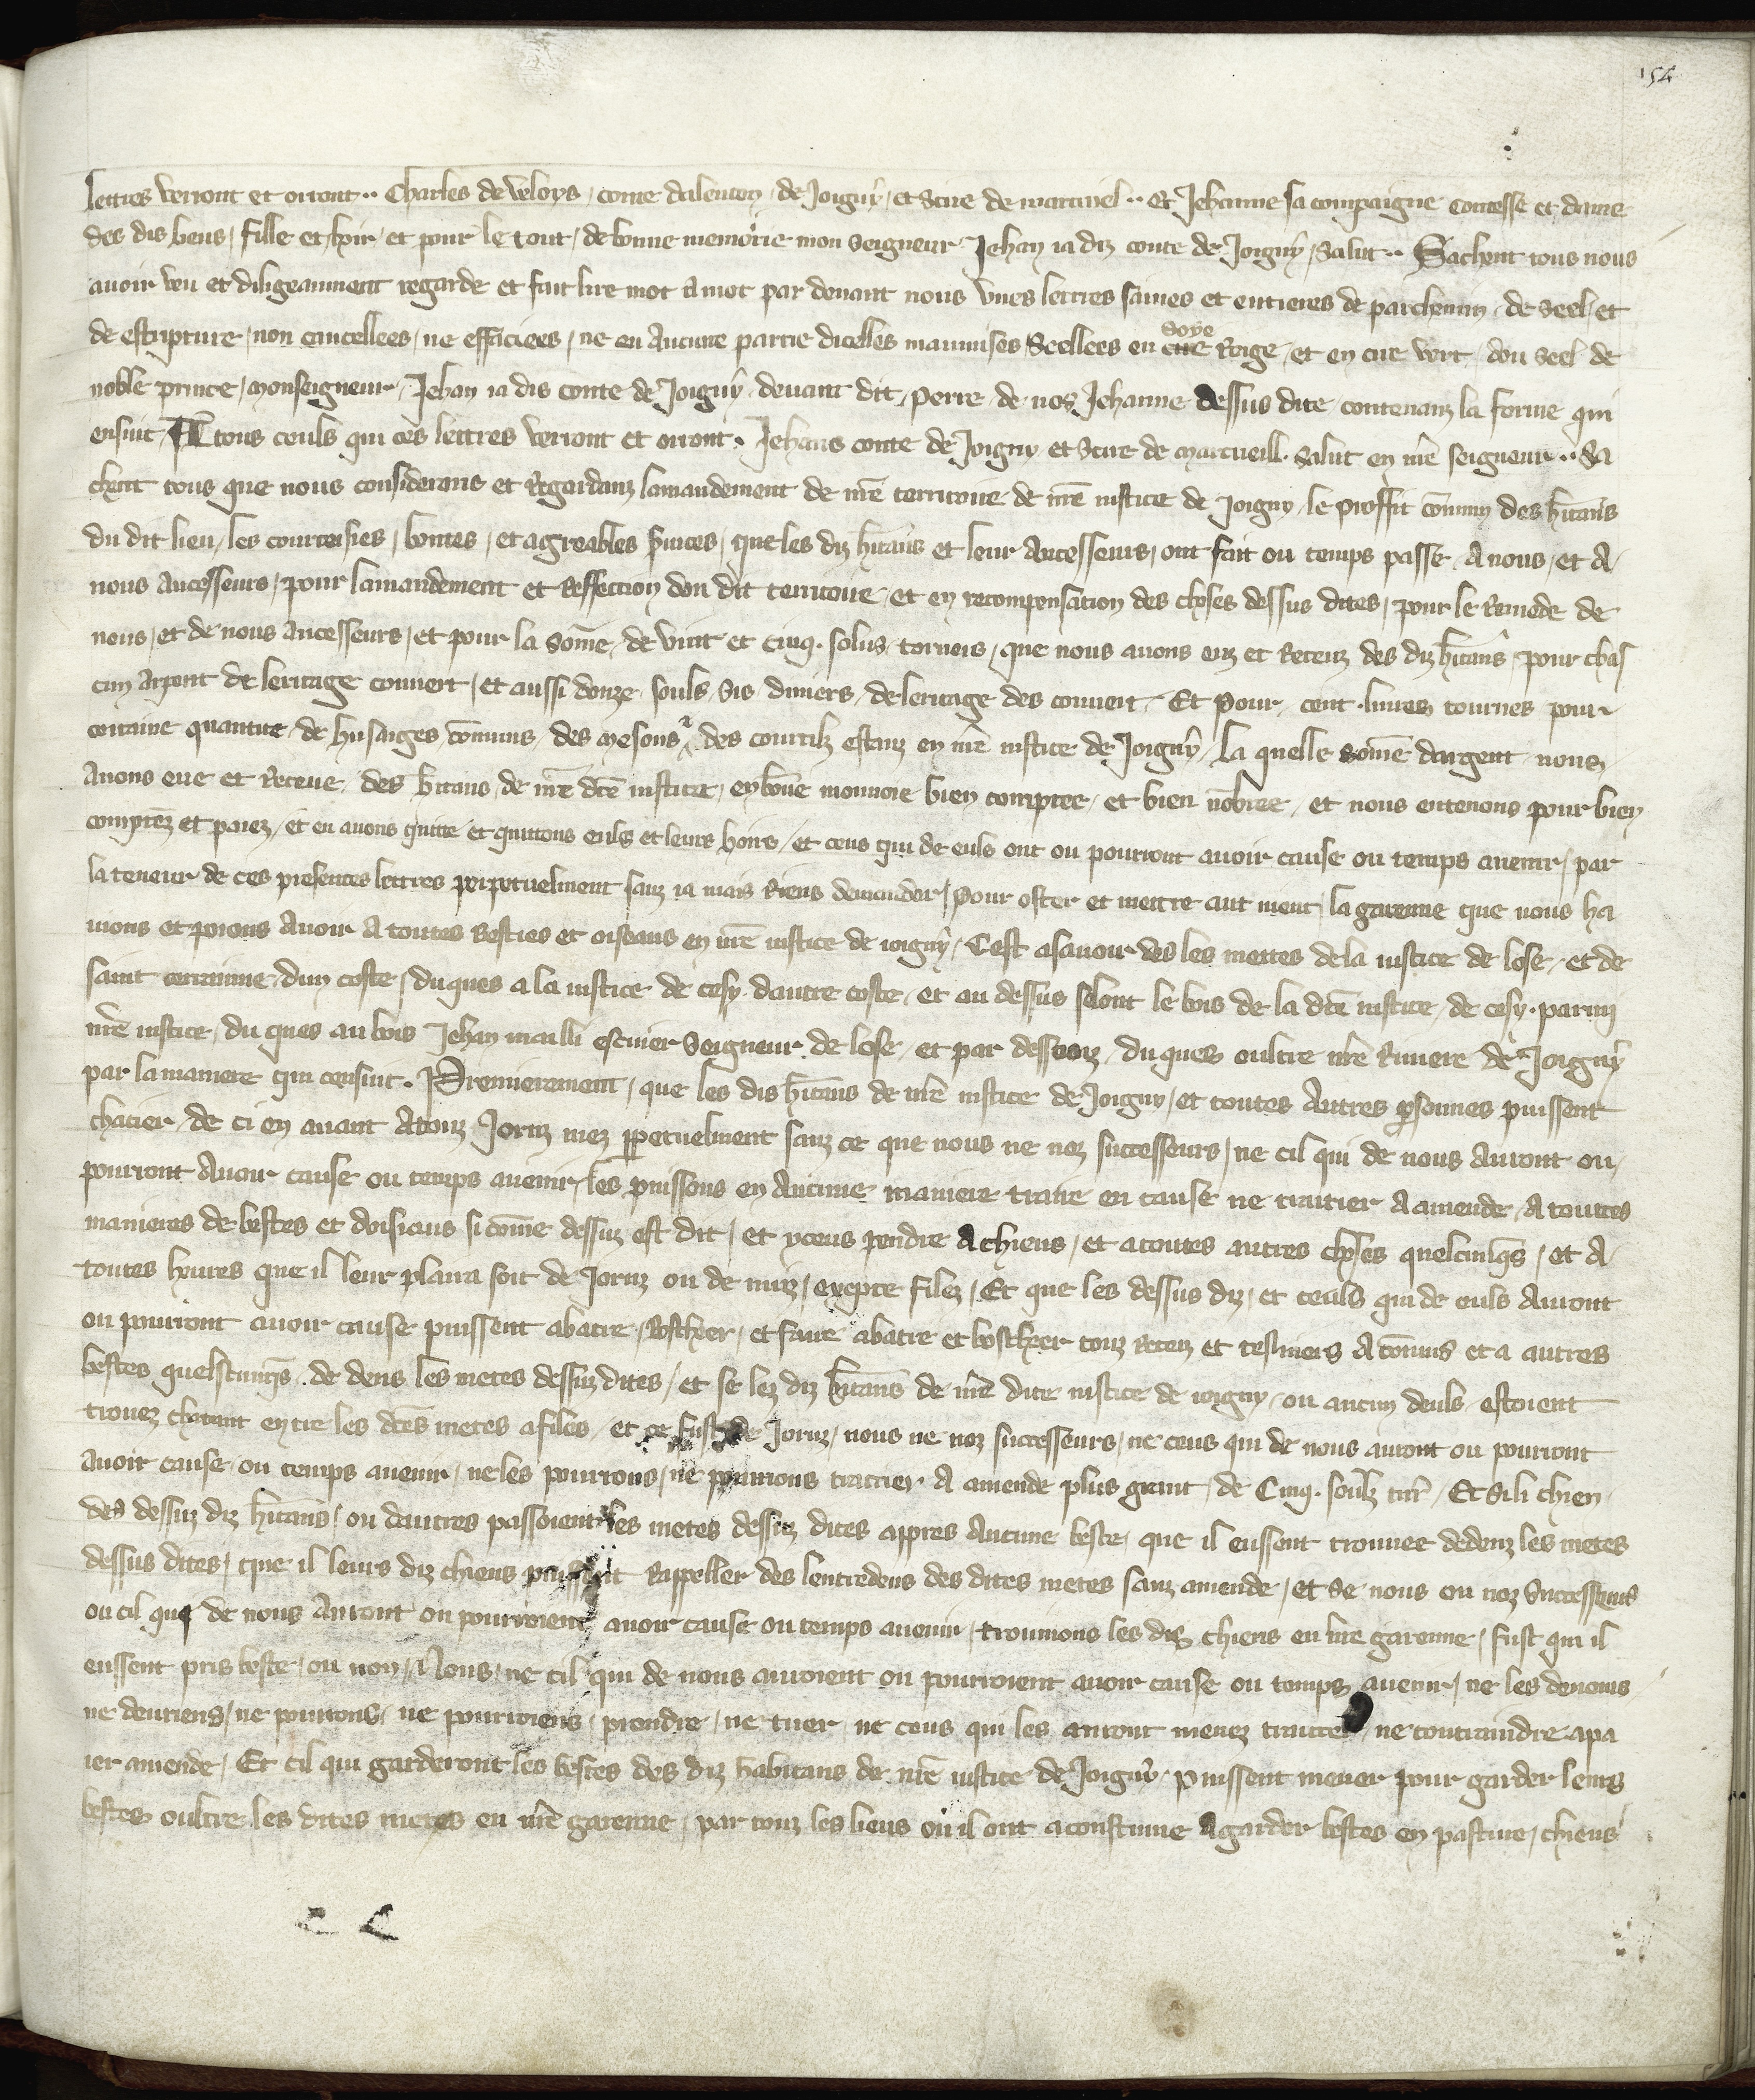 154
lettres verront et orront·· Charles de Valoys / conte dalencon / de Joigny / et Sire de marcueil ·· et Jehanne sa compaigne contesse et dame
des dis leus / fille et hoir / et pour le tout / de bonne memoire mon Seigneur Jehan ia diz conte de Joigny / salut ·· Sachent tous nous
auoir veu et diligeaument regarde et fait lire mot a mot par deuant nous vnes lettres saines et entieres de parchemin / de seel / et
de escripture / non cancellees / ne effaciees / ne en aucune partie dicelles maumises / Seellees en soye Roige / et en cire vert / dou seel de
noble prince / monseigneur / Jehan ia dis conte de Joigny / deuant dit / perre de nos Jehanne dessus dite contenanz la forme qui
ensuit / A tous ceuls qui ces lettres verront et orront. Jehans conte de Joigny et Sire de marcueill. Salut en nr̄e seigneur ·· Sa
chent tous que nous considerans et Regardanz lamandement de nr̄e territoire de nr̄e iustice de Joigny / le proffit cōmun des hītans
du dit lieu / les courtoisies / bontes / et agreables ſuices / que les diz hītans et leur ancesseurs / ont fait ou temps passe / A nous / et A
nous ancesseurs / pour lamandement et Reffection dou dit territoire / et en recompensation des choses dessus dites / pour le Remede de
nous / et de nous ancesseurs / et pour la Somē / de vint et cinq. solus tornois / que nous auons euz et Receuz des diz hītans / pour chas
cun arpent de leritage couuert / et aussi douze souls sis deniers / de leritage des couuert / Et pour cent liures tournes pour
certaine quantite de husaiges cōmuns / des mesons & des courtilz estanz en nr̄e iustice de Joigny / la quelle somē dargent nous
Auons eue et Receue / des hītans de nr̄e dc̄e iustice / en bōne monnoie bien comptee / et bien nōbree / et nous entenons pour bien
comptez et paiez / et en auons quitte et quittons euls et leurs hoirs / et ceus qui de euls ont ou pourront auoir cause ou temps auenir / par
la teneur de ces presentes lettres perpetuelment sanz ia mais Riens demander / Pour oster et mettre aut nient la garenne que nous ha
uions et poions Auoir A toutes Besties et oiseaus en nr̄e iustice de ioigny / Cest asauoir des les mettes de la iustice de lose / et de
saint cernnine dun coste / duques a la iustice de cesy dautre coste / et au dessus selont le bois de la dc̄e iustice / de cesy. parmi
nr̄e iustice / du ques au bois Jehan mailli escuier Seigneur de lose / et par dessouz / duques oultre nr̄e Riuiere de Joigny
par la maniere qui censuit. Premierement / que les dis hītans de nr̄e iustice de Joigny / et toutes Autres psonnes puissent
chacier / de ci en auant Atouz Jorns mez ppetuelment sanz ce que nous ne noz successeurs / ne cil qui de nous Auront ou
pourront Auoir cause ou temps auenir / les puissons en Aucune maniere traire en cause ne traitier A amende / A toutes
manieres de bestes et doisiaus si comē dessuz est dit / et yceus pendre A chiens / et atoutes autres choses quelcunq̄s / et A
toutes heures que il leur plaira soit de Jornz ou de nuiz / excepte filez / Et que les dessus diz / et ceauls qui de euls Auront
ou pourront auoir cause puissent abatre / boscheer / et faire abatre et boscheer touz Retez et tesnieres A cōnins et a autres
bestes quelscunq̄s / de dens les metes dessuzdites / et se lez diz hītans de nr̄e dite iustice de ioigny / ou aucun deuls estoient
trouez chacant entre les dc̄es metes a files / et ce fust de Jornz / nous ne noz successeurs / ne ceus qui de nous auront ou pourront
Auoir cause ou temps auenir / ne les pourrons / ne pourrions traitier A amende plus grant / de Cinq. soulz tur̄ / Et si li chien
des dessuz diz hītans / ou dautres passoient les metes dessuz dites appres Aucune beste / que il eussent trouuee dedenz les metes
dessus dites / que il leurs diz chiens puissent Rappeller des lentredens des dites metes sanz amende / et se nous ou noz Successeurs
ou cil qui de nous Auront ou pourroient auoir cause ou temps auenir / trouuions les dis chiens en nr̄e garenne / fust qui il
eussent pris beste / ou non / Nous / ne cil qui de nous auroient ou pourroient auoir cause ou temps auenir / ne les deuons
ne deuriens / ne pourrons / ne pourriens / prendre / ne tuer ne ceus qui les auront menez traitte ne contraindre apa
ier amende / Et cil qui garderont les bestes des diz habitans de nr̄e iustice de Joigny / puissent mener pour garder leurs
bestes oultre les dites metes en nr̄e garenne / par touz les lieus ou il ont acoustume A garder bestes en pasture / chiens